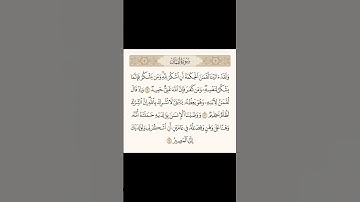 سُورَةُ لُقْمَان
وَلَقَدْ ءَاتَيْنَا لُقْمَٰنَ ٱلْحِكْمَةَ أَنِ ٱشْكُرْ لِلَّهِ وَمَن يَشْكُرْ فَإِنَّمَا
يَشْكُرُ لِنَفْسِهِۦ وَمَن كَفَرَ فَإِنَّ ٱللَّهَ غَنِىٌّ حَمِيدٌ ١٢ وَإِذْ قَالَ
لُقْمَٰنُ لِٱبْنِهِۦ وَهُوَ يَعِظُهُۥ يَٰبُنَىَّ لَا تُشْرِكْ بِٱللَّهِ إِنَّ ٱلشِّرْكَ
لَظُلْمٌ عَظِيمٌ ١٣ وَوَصَّيْنَا ٱلْإِنسَٰنَ بِوَٰلِدَيْهِ حَمَلَتْهُ أُمُّهُۥ
وَهْنًا عَلَىٰ وَهْنٍ وَفِصَٰلُهُۥ فِى عَامَيْنِ أَنِ ٱشْكُرْ لِى وَلِوَٰلِدَيْكَ
إِلَىَّ ٱلْمَصِيرُ ١٤